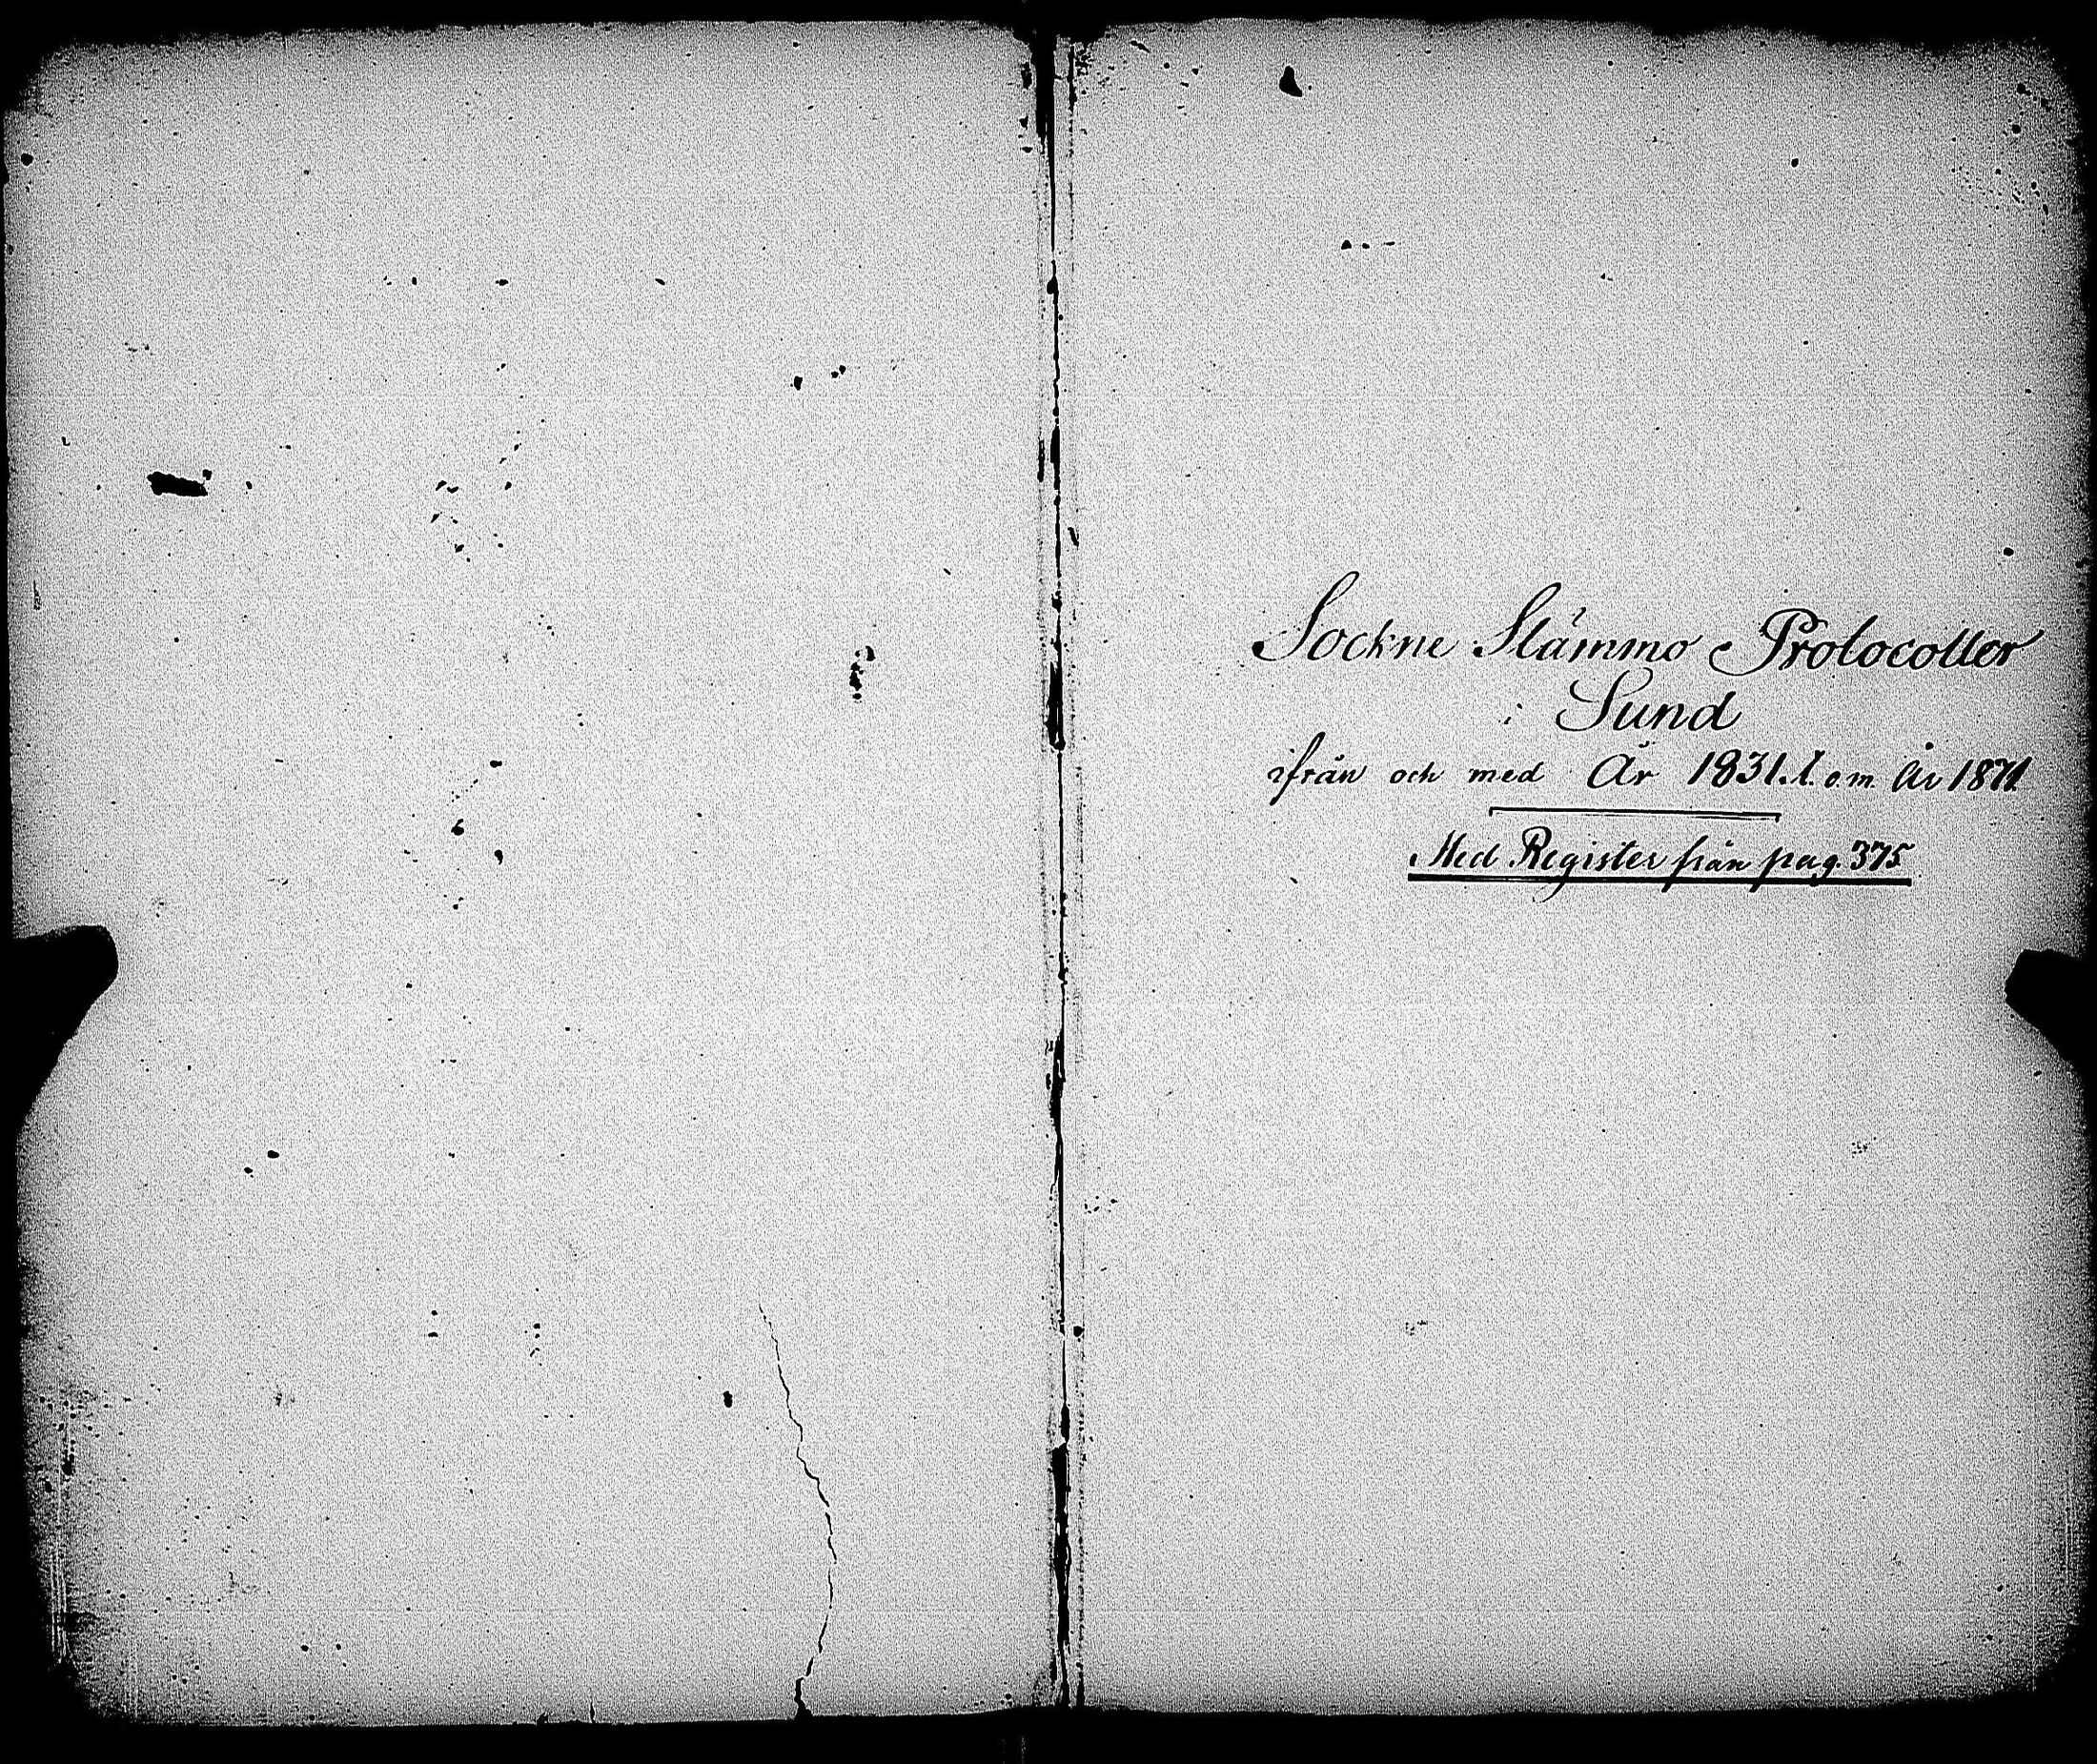 Sockne Stämmo Protocoller
i Sund
ifrån och med År 1831. t. o. m. År 1871.
Med Register från pag. 375